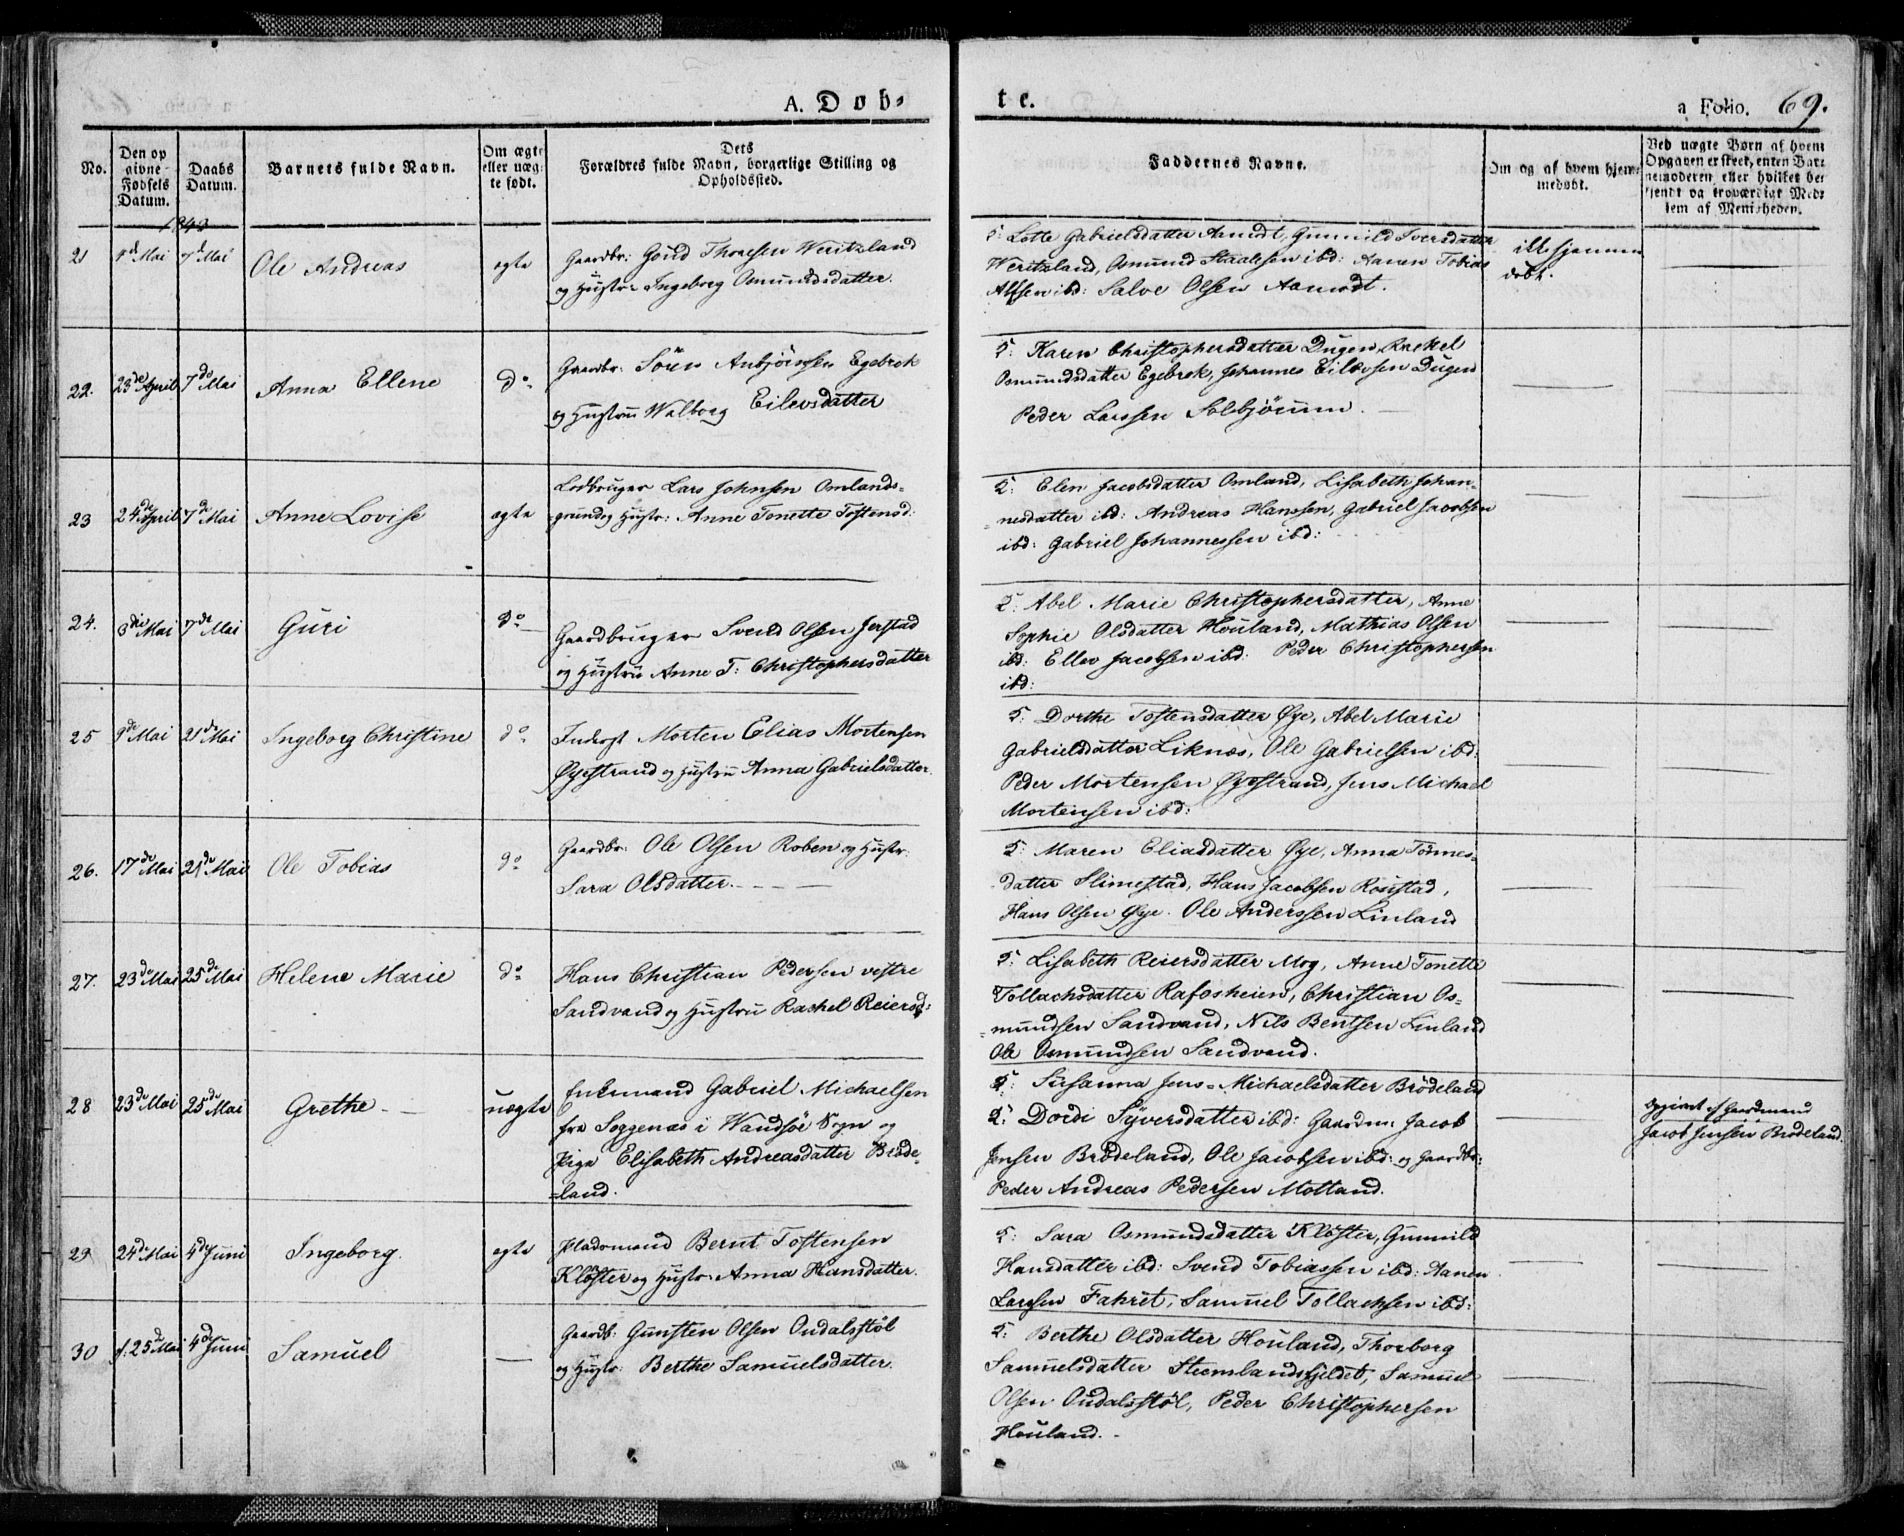 A. Døb-
te.
a Folio. 69.
No.
Den op
givne
Fødsels
Datum.
Daabs
Datum.
Barnets fulde Navn.
Om ægte
eller uæg-
te født.
Dets
Forældres fulde Navn, borgerlige Stilling og
Opholdssted.
Faddernes Navne.
Om og af hvem hjem-
medøbt.
Ved uægte Børn af hvem
Opgaven er skeet, enten Bar-
nemoderen eller hvilket be-
kjendt og troværdigt Med-
lem af Menigheden.
1843
21
7de Mai
Ole Andreas
ægte
Gaardbr: Gould Thorsen Weritzland
og Hustr: Ingeborg Osmundsdatter.
5: Lotte Gabrielsdatter Aamodt, Gunnild Iversdatter
Weritzland, Osmund Staalesen ibd: Aanen Tobias
Alfsen ibd: Salve Olsen Aamodt.
ikke hjemme
døbt.
22.
23de April
7de Mai
Anna Ellene
do
Gaardbr: Sören Anbjørnsen Egebrok
og Hustru Walborg Eilevsdatter
5: Karen Christophersdatter Dugen, Rachel
Osmundsdatter Egebrok, Johannes Eilevsen Dugen
Peder Larssen Solbjørnn.
23
24de April
7de Mai
Anne Lovise
ægte
Lodbruger Lars Johnsen Omlands-
grund og Hustr: Anne Tonette Tostensd:
5: Elen Jacobsdatter Omland, Lisabeth Johan-
=nesdatter ibd: Andreas Hanssen, Gabriel Jacobsen
ibd: Gabriel Johannessen ibd:
24.
3die Mai
7de Mai
Guri
do
Gaardbruger Svend Olsen Jerstad
og Hustru Anne T: Christophersdatter
5: Abel Marie Christophersdatter, Anne
Sophie Olsdatter Houland, Mathias Olsen
ibd: Ellev Jacobsen ibd: Peder Christophersen
ibd:
25
9de Mai
21de Mai
Ingeborg Christine
do
Inderst Morten Elias Mortensen
Øyestrand og Hustru Anna Gabrielsdatter.
5: Dorthe Tostensdatter Øye, Abel Marie
Gabrielsdatter Liknæs, Ole Gabrielsen ibd:
Peder Mortensen Øyestrand, Jens Michael
Mortensen ibd:
26.
17de Mai
21de Mai
Ole Tobias
do
Gaardbr: Ole Olsen Roben og Hustr:
Sara Olsdatter.
5: Maren Eliasdatter Øye, Anna Tönnes-
datter Slimestad, Hans Jacobsen Roustad,
Hans Olsen Øye. Ole Anderssen Linland
27.
23de Mai
25de Mai
Helene Marie
do
Hans Christian Pedersen vestre
Sandvand og Hustru Rachel Reiersd:
5: Lisabeth Reiersdatter Mog, Anne Tonette
Tollachsdatter Rafosheien, Christian Os-
=mundsen Sandvand, Nils Bentsen Linland
Ole Osmundsen Sandvand.
28
23de Mai
25de Mai
Grethe
uægte
Enkemand Gabriel Michaelsen
fra Seggenæs i Wandsöe Sogn og
Pige Elisabeth Andreasdatter Bröde-
=land.
5: Susanna Jens=Michaelsdatter Brödeland
2: Dordi Syversdatter ibd: Gaardm: Jacob
Jensen Brödeland, Ole Jacobsen ibd: og Gaardbr:
Peder Andreas Pedersen Motland.
opgivet af Gaardmand
Jacob Jensen Brödeland.
29
24de Mai
4de Juni
Ingeborg.
ægte
Pladsmand Bernt Tostensen
Klöster og Hustr: Anna Hansdatter.
5: Sara Osmundsdatter Klöster, Gunnild
Hansdatter ibd: Svend Tobiassen ibd: Aanen
Larssen Fahret, Samuel Tollachsen ibd:
30
d: 25de Mai
4de Juni
Samuel
Gaardb: Gunsten Olsen Oudalsstøl
og Hustr: Berthe Samuelsdatter.
5: Berthe Olsdatter Houland, Thorborg
Samuelsdatter Steemlandsfjeldet, Samuel
Olsen Oudalsstøl, Peder Christophersen
Houland.